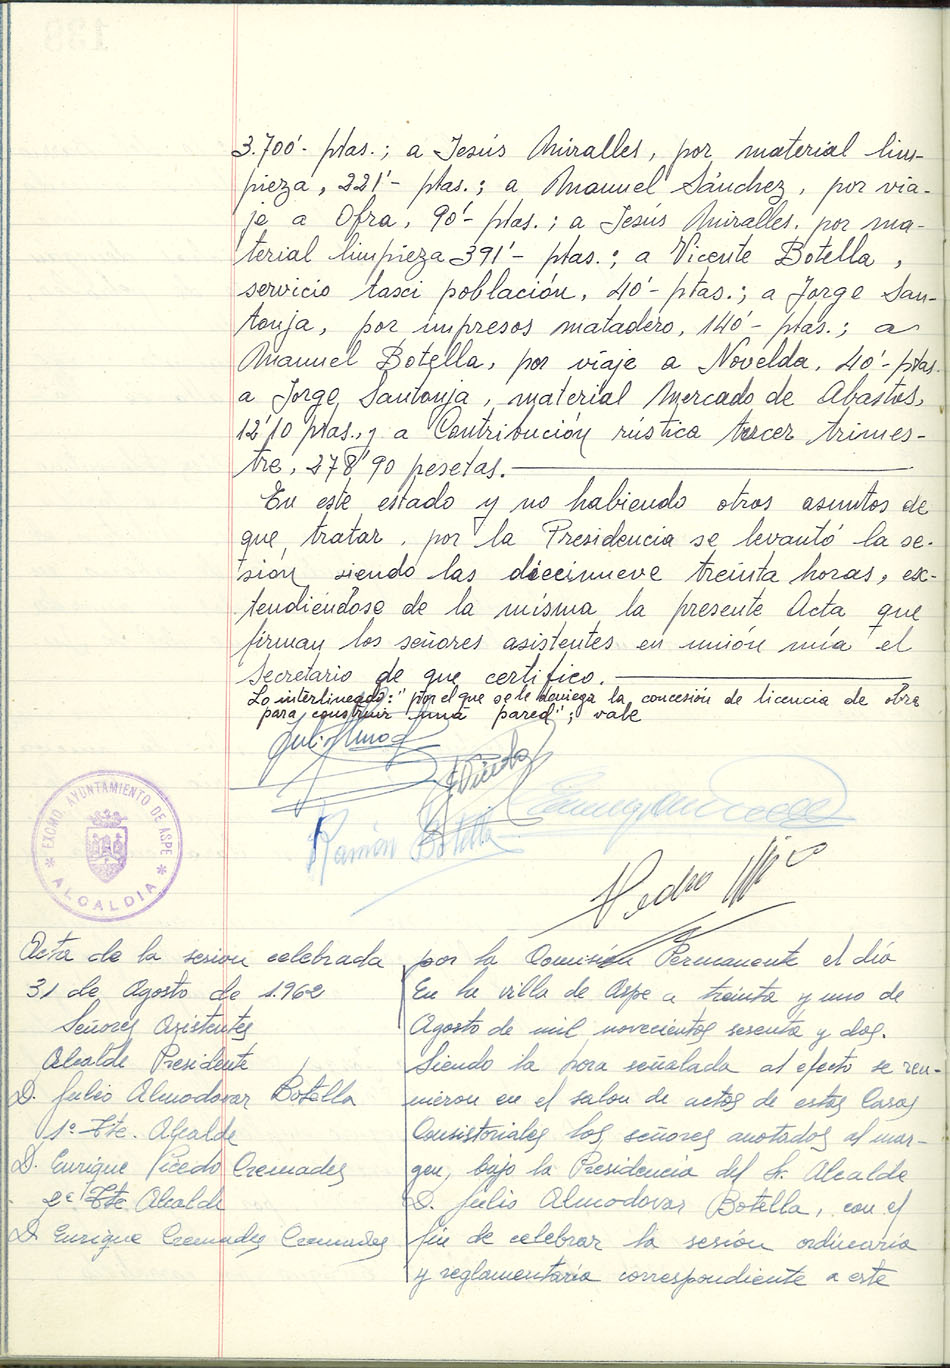 3.700'- ptas.; a Jesús Miralles, por material lim-
pieza, 221'- ptas.; a Manuel Sánchez, por via-
je a Ofra, 90'- ptas.; a Jesús Miralles, por ma-
terial limpieza 391'- ptas.; a Vicente Botella,
servicio tasci población, 40'- ptas.; a Jorge San-
tonja, por impresos matadero, 140'- ptas.; a
Manuel Botella, por viaje a Novelda, 40'- ptas.
a Jorge Santonja, material Mercado de Abastos,
12'10 ptas., y a Contribución rústica tercer trimes-
tre, 278'90 pesetas.
En este estado y no habiendo otros asuntos de
que tratar, por la Presidencia se levantó la se-
sion siendo las diecinueve treinta horas, ex-
tendiéndose de la misma la presente Acta que
firman los señores asistentes en unión mía el
Secretario de que certifico.
Lo interlineado: "por el que se le deniega la concesión de licencia de obra
para construir una pared"; vale
Ramón Botella
Pedro
EXCMO. AYUNTAMIENTO DE ASPE
* ALCALDIA *
Acta de la sesion celebrada por la Comisión Permanente el día
31 de Agosto de 1.962
Señores Asistentes
Alcalde Presidente
D. Julio Almodovar Botella
1º Tte. Alcalde
D. Enrique Vicedo Cremades
2º Tte Alcalde
D Enrique Cremades Cremades
En la villa de Aspe a treinta y uno de
Agosto de mil novecientos sesenta y dos.
Siendo la hora señalada al efecto se reu-
nieron en el salon de actos de estas Casas
Consistoriales los señores anotados al mar-
gen, bajo la Presidencia del Sr. Alcalde
D. Julio Almodovar Botella, con el
fin de celebrar la sesión ordinaria
y reglamentaria correspondiente a este